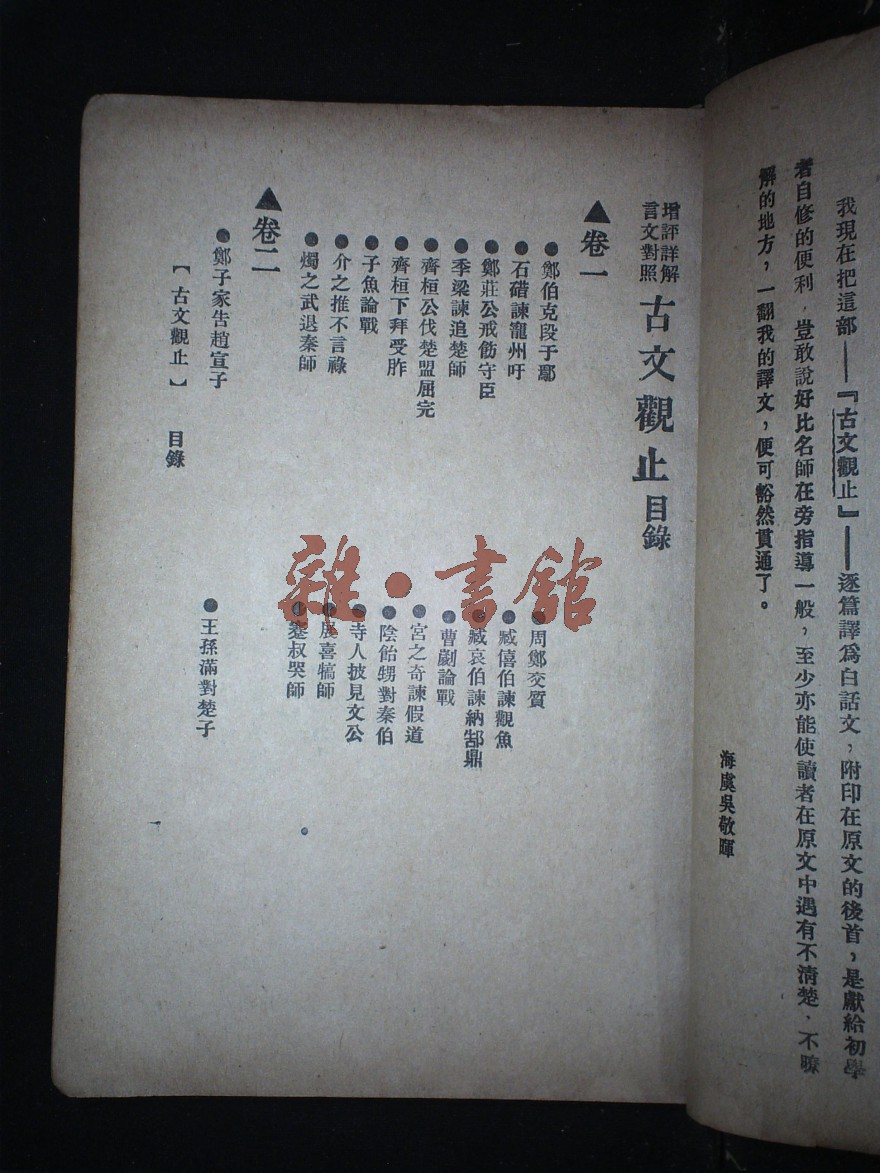 我現在把這部——『古文觀止』——逐篇譯爲白話文，附印在原文的後首，是獻給初學
者自修的便利，豈敢說好比名師在旁指導一般，至少亦能使讀者在原文中遇有不清楚、不瞭
解的地方，一翻我的譯文，便可豁然貫通了。
海虞吳敬暉
增評詳解
言文對照
古文觀止目錄
▲卷一
●鄭伯克段于鄢
●周鄭交質
●石碏諫寵州吁
●臧僖伯諫觀魚
●鄭莊公戒飭守臣
●臧哀伯諫納郜鼎
●季梁諫追楚師
●曹劌論戰
●齊桓公伐楚盟屈完
●宮之奇諫假道
●齊桓下拜受胙
●陰飴甥對秦伯
●子魚論戰
●寺人披見文公
●介之推不言祿
●展喜犒師
●燭之武退秦師
●蹇叔哭師
▲卷二
●鄭子家告趙宣子
●王孫滿對楚子
【古文觀止】 目錄
雜·書館